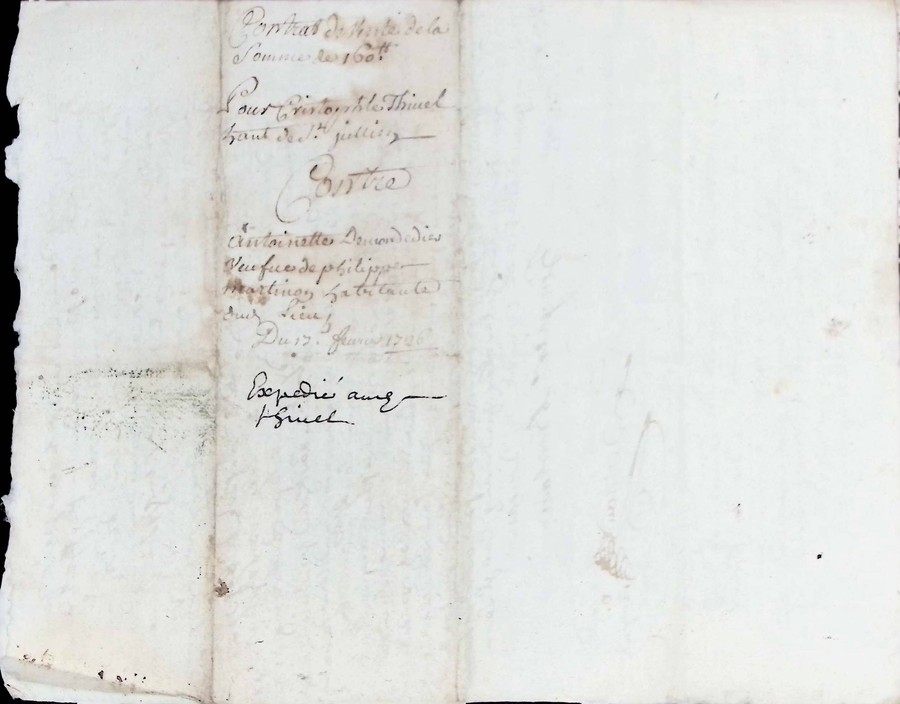 Contrat de vente de la
Somme de 160tt
Pour Cristophle Thiuel
hant de St jullien
Contre
Antoinette Demondedieu
Veufue de philippe
Martinon habitante
dud Lieu
Du 17e feurier 1726
Expedié aud
thiuel